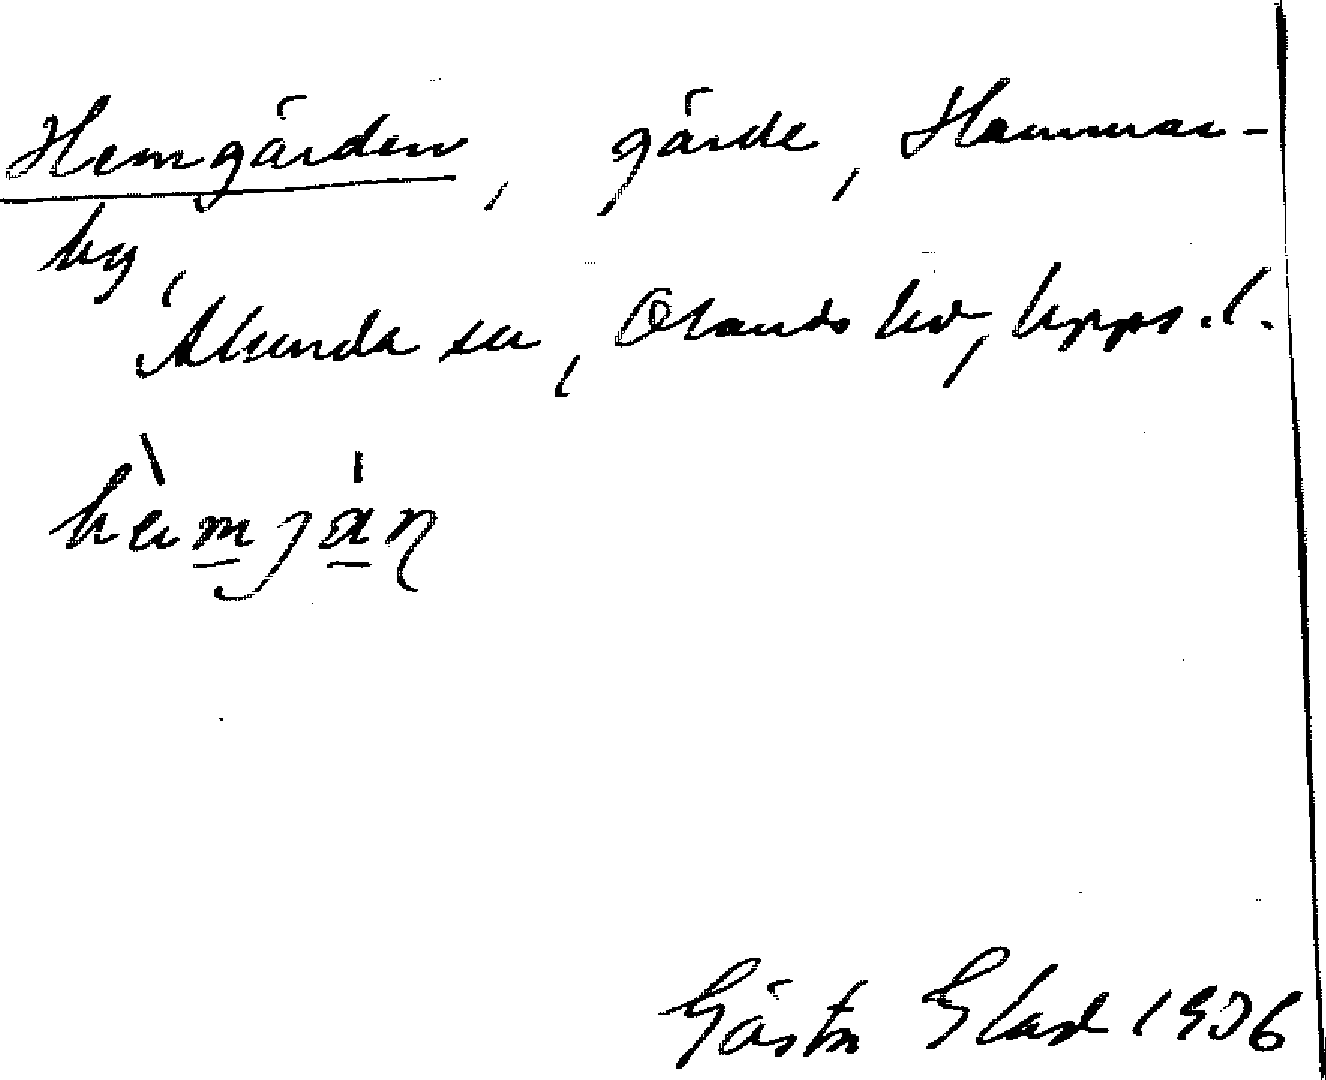 Hemgärden, gärde, Hammar-
by,
Alunda sn, Olands hd, Upps. l.
Gösta 1936